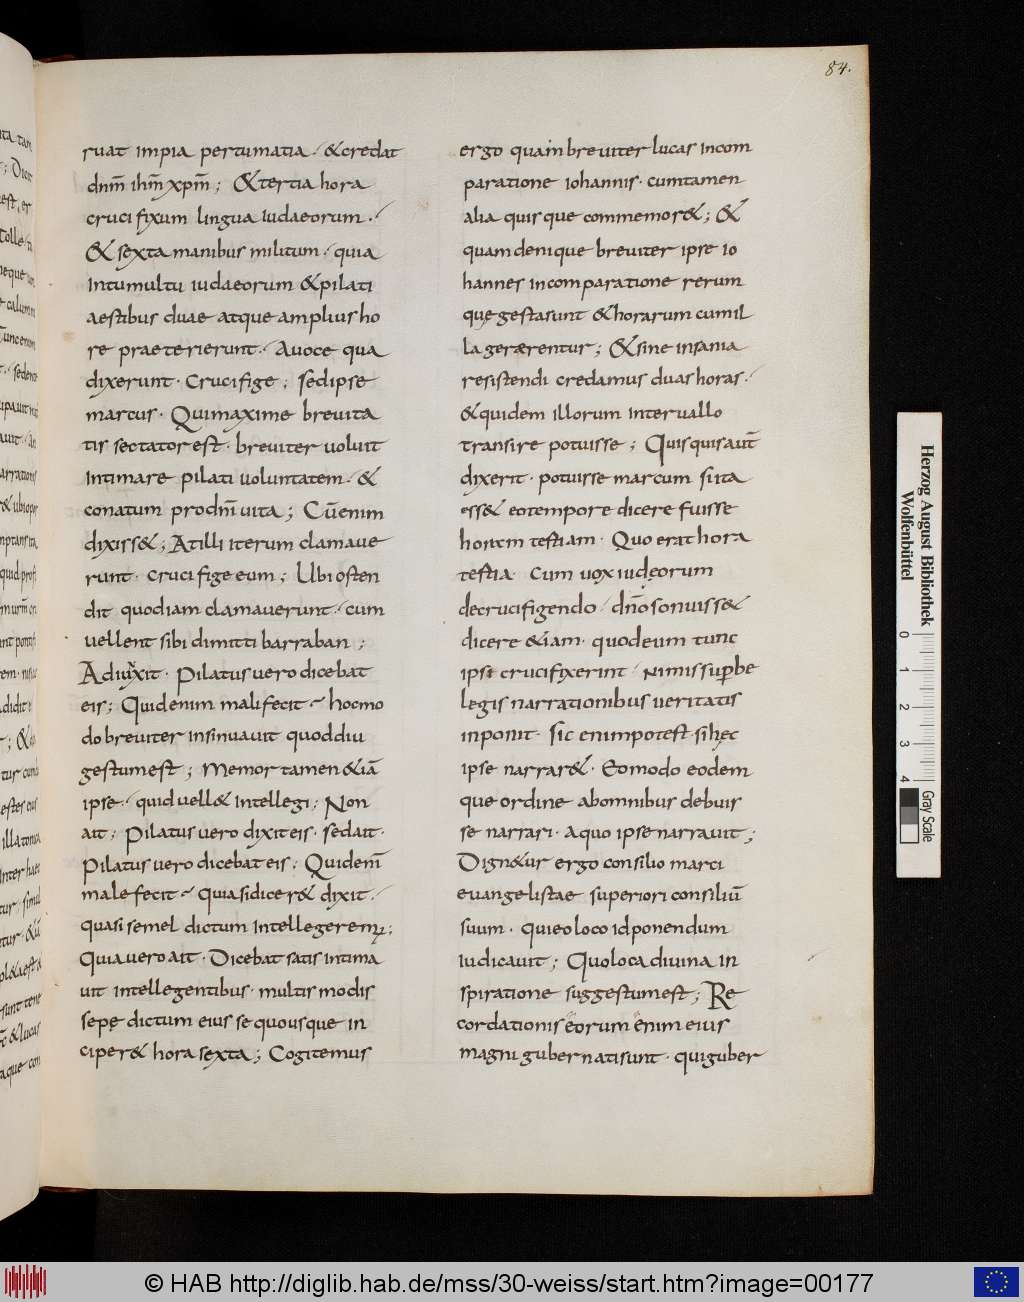 84.
ruat impia pertumatia · &credat
dnm̄ ihm̄ xpm̄ ; &tertia hora
crucifixum lingua iudaeorum ·
& sexta manibus militum · quia
intumultu iudaeorum &pilati
aestibus duae atque amplius ho
re praeterierunt · Auoce qua
dixerunt · Crucifige ; sedipse
marcus · Quimaxime breuita
tis sectator est̄ · breuiter uoluit
intimare pilati uoluntatem · &
conatum prodnī uita ; Cūenim
dixiss& ; Atilli iterum clamaue
runt · crucifige eum ; Ubi osten
dit quodiam clamauerunt · cum
uellent sibi dimitti barraban ;
Adiunxit · Pilatus uero dicebat
eis ; Quidenim malifecit · hocmo
do breuiter insinuauit quoddiu
gestumest ; Memor tamen &iā
ipse · quiduell& intellegi ; Non
ait ; Pilatus uero dixit eis · sedait ·
Pilatus uero dicebat eis ; Quidenī
male fecit · Quiasidicer& dixit ·
quasi semel dictum intellegeremur ;
Quia uero ait · Dicebat satis intima
uit intellegentibus · multis modis
sepe dictum eius se quousque in
ciper& hora sexta ; Cogitemus
ergo quam breuiter lucas incom
paratione iohannis · cumtamen
alia quisque commemor& ; &
quam denique breuiter ipse io
hannes incomparatione rerum
quę gestasunt &horarum cumil
la gererentur ; &sine insania
resistendi credamus duas horas ·
&quidem illorum interuallo
transire potuisse ; Quisquisaut̄
dixerit · potuisse marcum si ita
ess& eotempore dicere fuisse
horam tertiam · Quo erat hora
tertia · Cum uox iudęorum
decrucifigendo · dn̄o sonuiss&
dicere &iam · quodeum tunc
ipsi crucifixerint · Nimis sup̄be
legis narrationibus ueritatis
inponit · sic enimpotest sihęc
ipse narrar& · Eomodo eodem
que ordine abomnibus debuis
se narrari · aquo ipse narrauit ;
Dign&ur ergo consilio marci
euangelistae superiori consiliū
suum · quieoloco id ponendum
iudicauit ; Quoloca diuina in
spiratione suggestumest ; Re
cordationis eorum enim eius
magni gubernatisunt · quiguber
Herzog August Bibliothek
Wolfenbüttel
0 1 2 3 4
Gray Scale
© HAB http://diglib.hab.de/mss/30-weiss/start.htm?image=00177